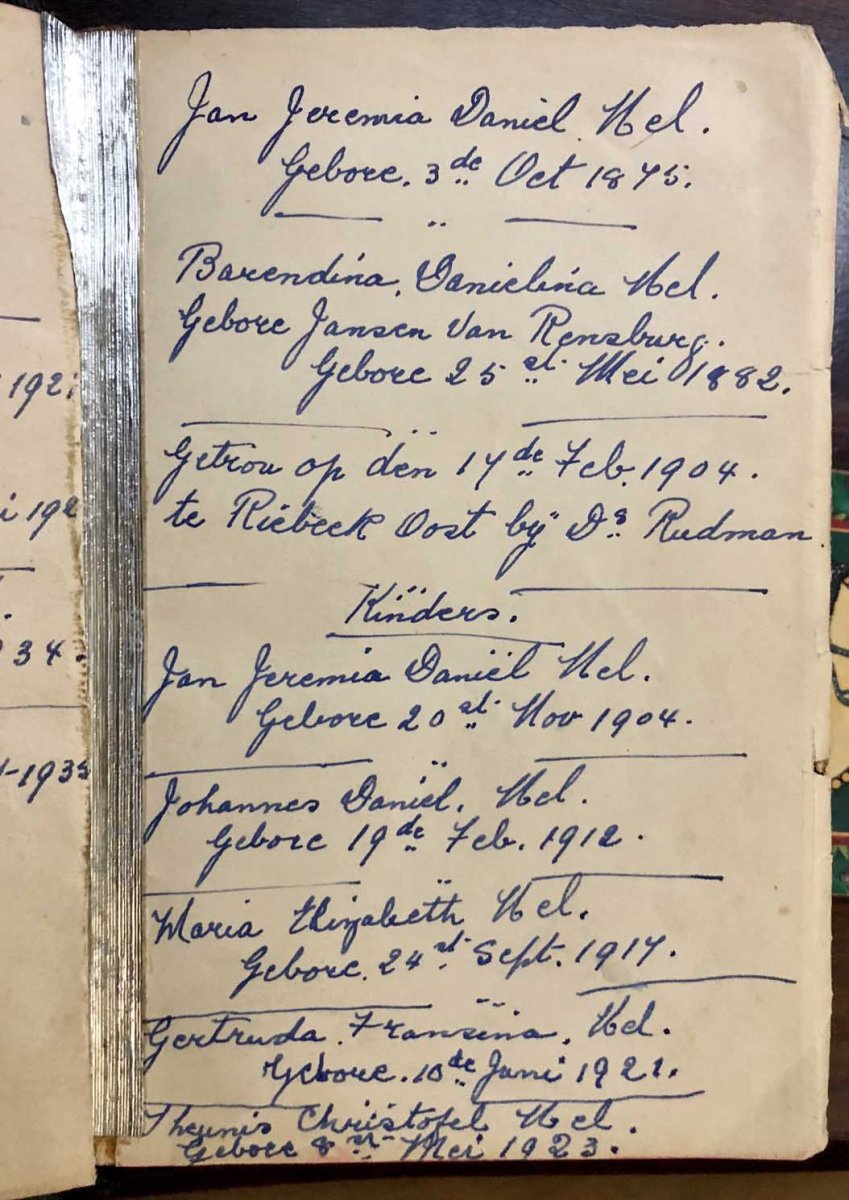 34.
Jan Jeremia Daniel Nel.
Gebore. 3de Oct 1875.
Barendina. Danielina Nel.
Gebore Jansen Van Rensburg.
Gebore 25st. Mei 1882.
Getrou op den 17de Feb. 1904.
te Riebeek Oost bÿ Ds Rudman
Kinders.
Jan Jeremia Daniël Nel.
Gebore 20st. Nov 1904.
Johannes Daniel. Nel.
Gebore 19de Feb. 1912.
Maria Elizabeth Nel.
Gebore. 24st. Sept. 1917.
Gertruda. Fransina. Nel.
Gebore. 10de Juni 1921.
Theunis Christofel Nel.
Gebore 8st. Mei 1923.